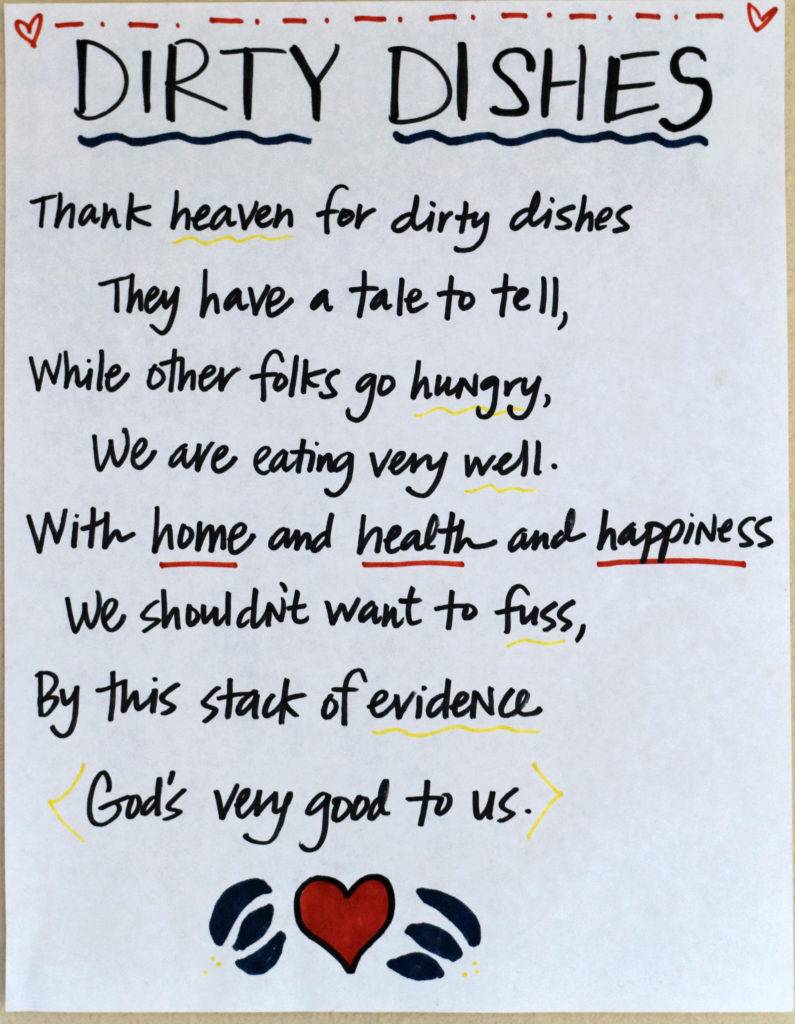 DIRTY DISHES
Thank heaven for dirty dishes
They have a tale to tell,
While other folks go hungry,
We are eating very well.
With home and health and happiness
We shouldn't want to fuss,
By this stack of evidence
God's very good to us.